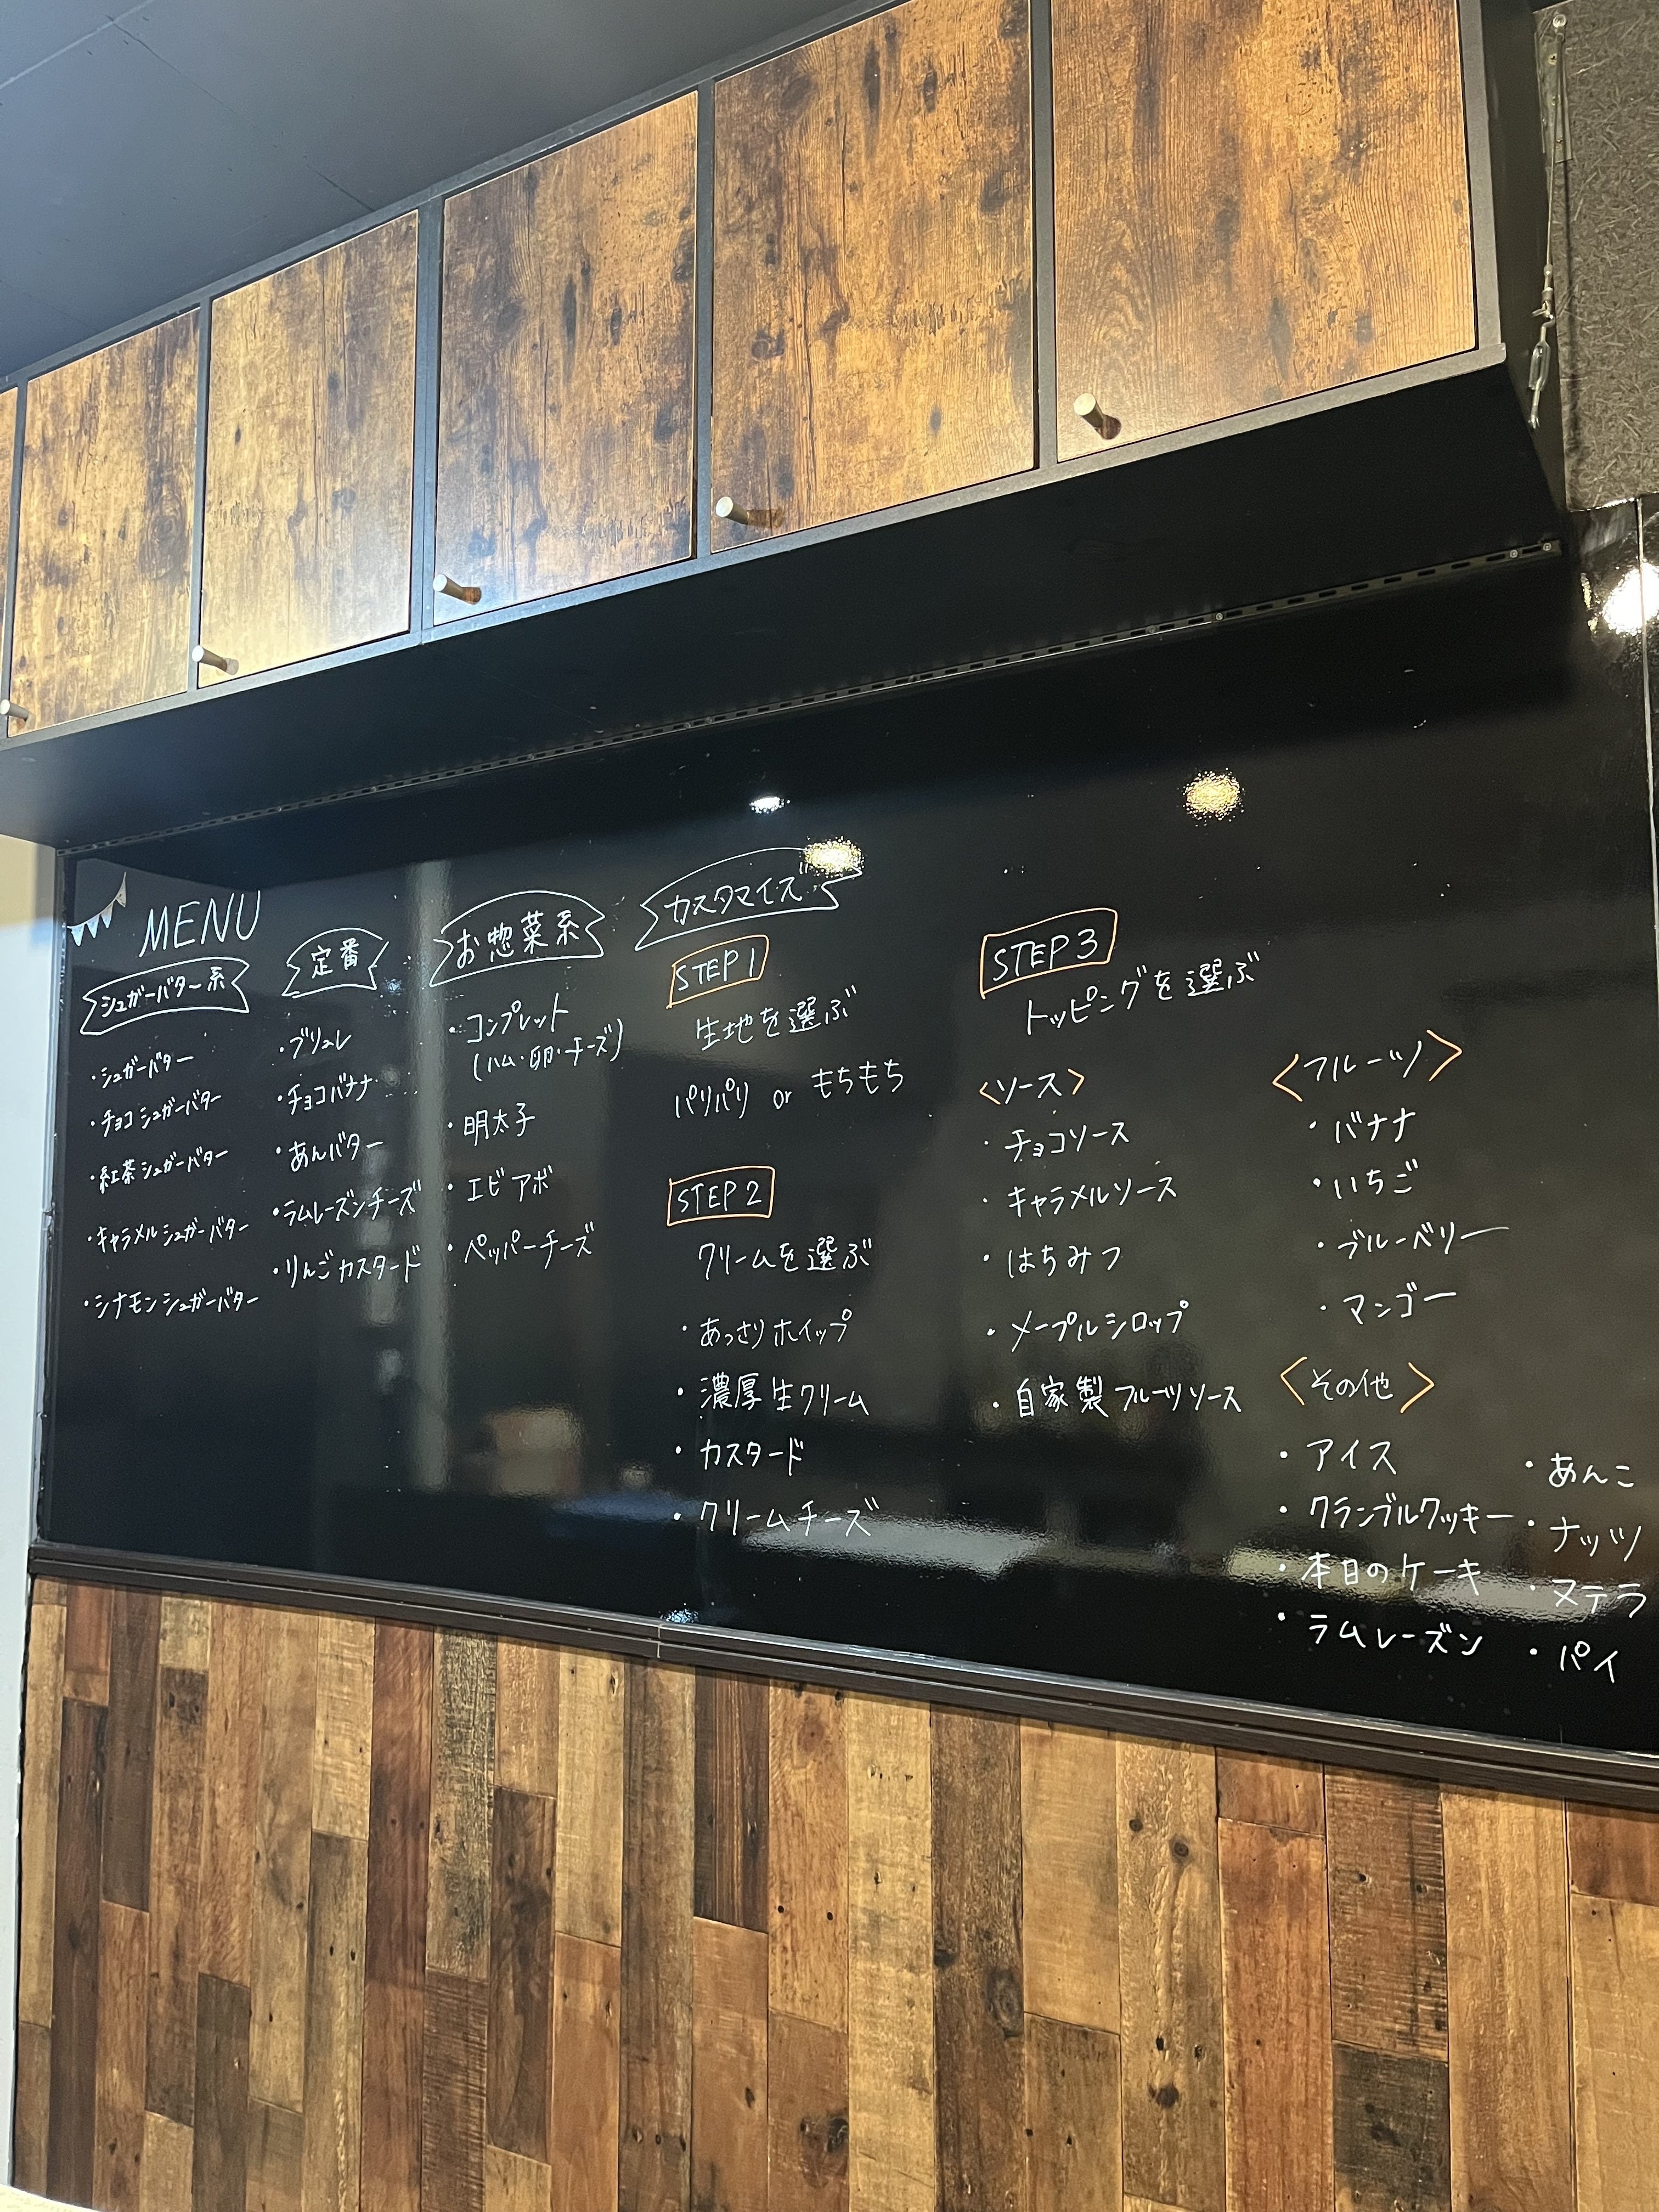 MENU
シュガーバター系
・シュガーバター
・チョコシュガーバター
・紅茶シュガーバター
・キャラメルシュガーバター
・シナモンシュガーバター
定番
・ブリュレ
・チョコバナナ
・あんバター
・ラムレーズンチーズ
・りんごカスタード
お惣菜系
・コンプレット
(ハム・卵・チーズ)
・明太子
・エビアボ
・ペッパーチーズ
カスタマイズ
STEP1
生地を選ぶ
パリパリ or もちもち
STEP2
クリームを選ぶ
・あっさりホイップ
・濃厚生クリーム
・カスタード
・クリームチーズ
STEP3
トッピングを選ぶ
<ソース>
・チョコソース
・キャラメルソース
・はちみつ
・メープルシロップ
・自家製フルーツソース
<フルーツ>
・バナナ
・いちご
・ブルーベリー
・マンゴー
<その他>
・アイス
・クランブルクッキー
・本日のケーキ
・ラムレーズン
・あんこ
・ナッツ
・ヌテラ
・パイ